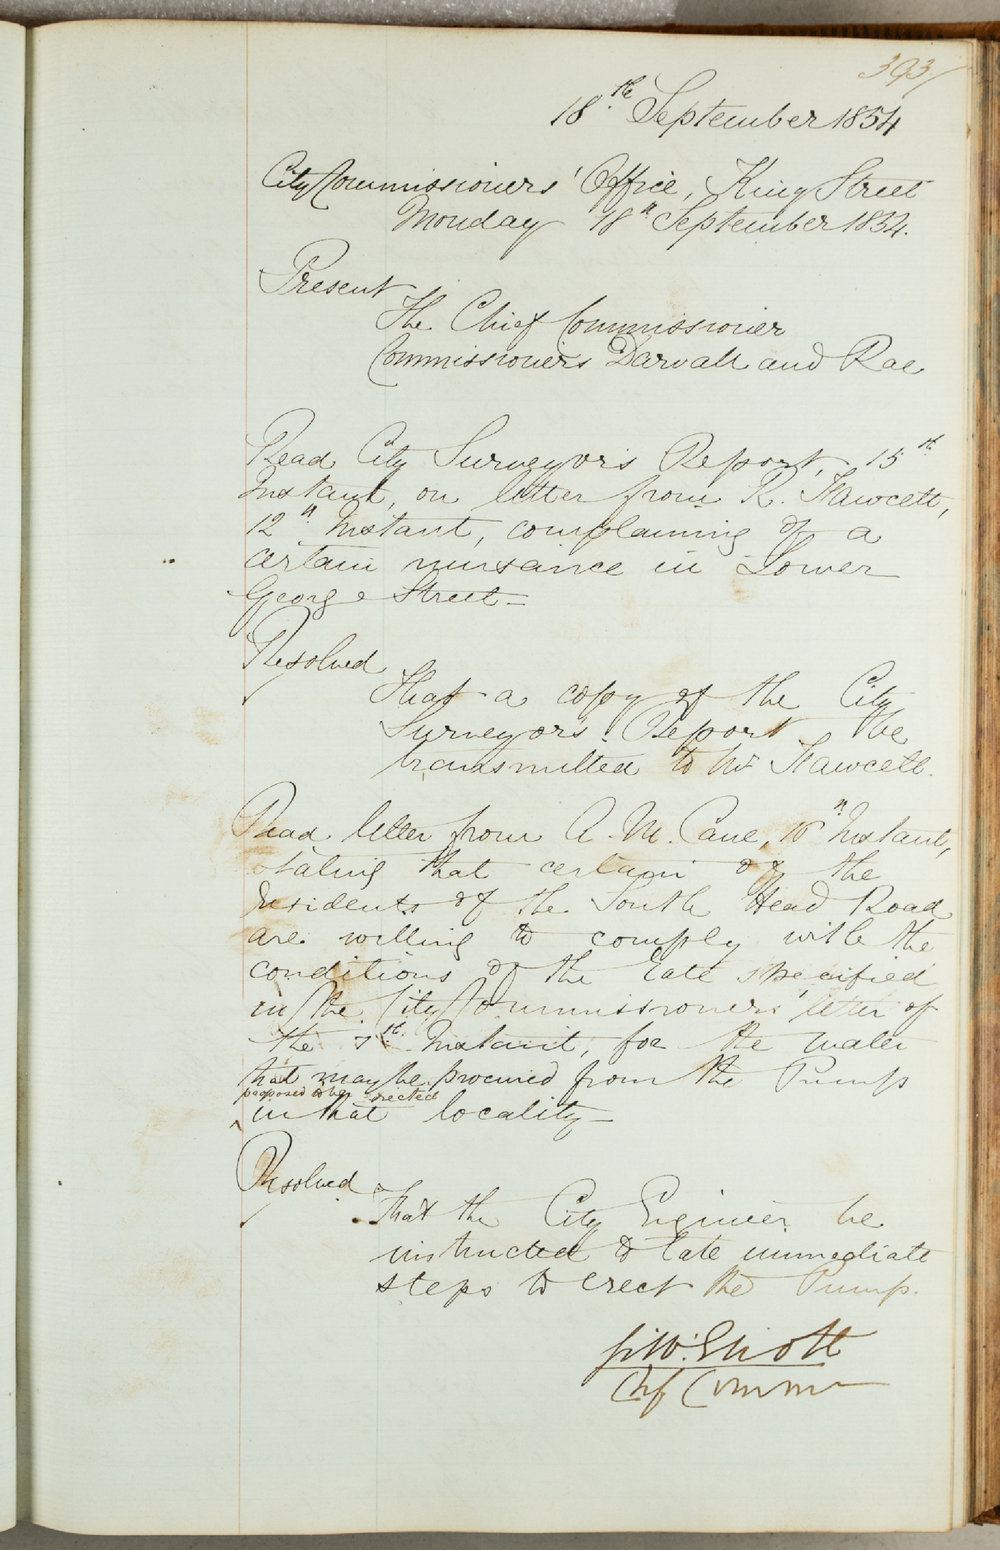 393/
18.th September 1854
City Commissioners' Office, King Street
Monday 18th September 1854.
Present
The Chief Commissioner
Commissioners Darvall and Rae
Read City Surveyor's Report, 15th
Instant, on letter from R. Fawcett,
12th Instant, complaining of a
certain nuisance in Lower
George Street =
Resolved
That a copy of the City
Surveyor's Report be
transmitted to Mr Fawcett.
Read letter from A. M. Cane, 16th Instant,
stating that certain of the
residents of the South Head Road
are willing to comply with the
conditions of the late specified
in the City Commissioners' letter of
the 7th Instant, for the water
that may be procured from the Pump
proposed to be erected
in that locality —
Resolved
That the City Engineer be
instructed to take immediate
steps to erect the Pump.
G. W. Eliott
Chf Commr